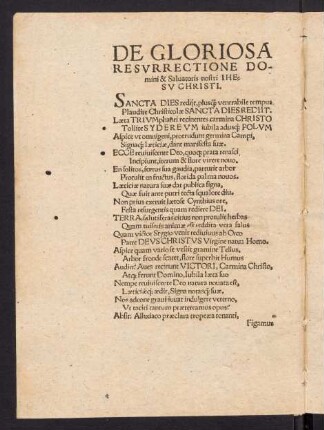 DE GLORIOSA
RESVRRECTIONE DO-
mini & Saluatoris nostri IHE-
SV CHRISTI.
SANCTA DIES redijt, plusq venerabile tempus
Plaudite Christicolæ SANCTA DIES REDIIT.
Læta TRIVMphanti recinentes carmina CHRISTO
Tollite SYDEREVM iubila adusq POLVM
Aspice vt omnigeni, protrudunt germina Campi,
Signaq lætíciæ, dant manifesta suæ.
ECCE reuiuiscente Deo, quoq prata renasci
Incipiunt, iterum & flore virere nouo.
En solitos, sertus sua gaudia, parturit arbor
Protulit en fructus, florida palma nouos.
Lætíciæ natura suæ dat publica signa,
Quæ fuit ante pati tecta squalore diu.
Non prius extruit lætose Cynthius ore,
Festa resurgentis quam rediere DEI.
TERRA salutiferas eicius non protulit herbas
Quam miseris animæ est reddita vera salus
Quam victor Stygio venit rediuiuus ab Orco
Parte DEVS CHRISTVS Virgine natus Homo.
Aspice quam vario se vestit gramine Tellus,
Arbor fronde scatet, flore superbit Humus
Audin? Aues recinunt VICTORI, Carmina Christo,
Atq ferunt Domino, Iubila læta suo
Nempe reuiuiscente Deo natura nouata est,
Lætíciæq ædit, Signa notatq suæ.
Nos adeone graui fuimus indulgere veterno,
Vt tacíti tantum prætereamus opus?
Absit. Abtaiaco præclara trophæa tenenti,
Figamus